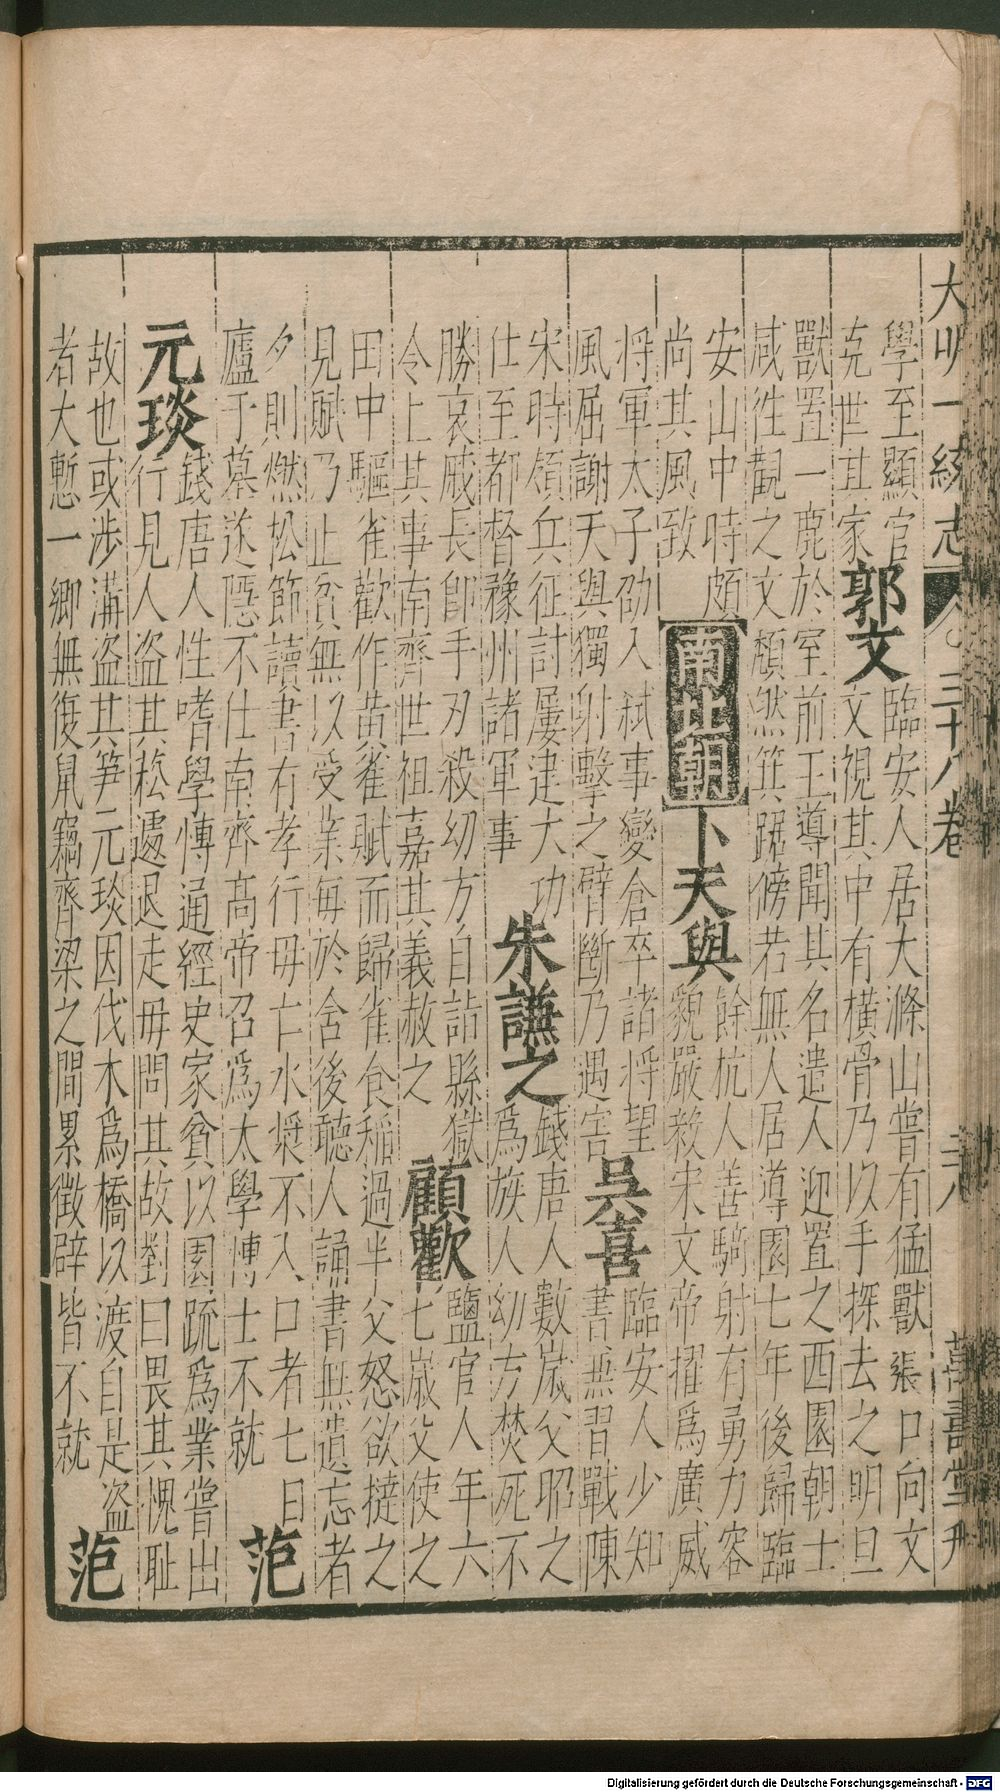 大明一統志 三十八卷 二八 萬壽堂刊
學至顯官
克世其家
郭文
臨安人居大滌山嘗有猛獸張口向文
文視其中有橫骨乃以手探去之明旦
獸置一鹿於室前王導聞其名遣人迎置之西園朝士
咸徃觀之文頹然箕踞傍若無人居導園七年後歸臨
安山中時頗
尚其風致
南北朝
卜天與
餘杭人善騎射有勇力容
貌嚴毅宋文帝擢爲廣威
將軍太子劭入弒事變倉卒諸將望
風屈謝天與獨射擊之臂斷乃遇害
吳喜
臨安人少知
書兼習戰陳
宋時領兵征討屢建大功
仕至都督豫州諸軍事
朱謙之
錢唐人數歲父昭之
爲族人幼方焚死不
勝哀戚長卽手刃殺幼方自詣縣獄
令上其事南齊世祖嘉其義赦之
顧歡
鹽官人年六
七歲父使之
田中驅雀歡作黃雀賦而歸雀食稻過半父怒欲撻之
見賦乃止貧無以受業每於舍後聽人誦書無遺忘者
夕則燃松節讀書有孝行母亡水漿不入口者七日
廬于墓遂隱不仕南齊高帝召爲太學博士不就
范
元琰
錢唐人性嗜學博通經史家貧以園蔬爲業嘗出
行見人盜其菘遽退走母問其故對曰畏其愧耻
故也或涉溝盜其笋元琰因伐木爲橋以渡自是盜
者大慙一鄉無復鼠竊齊梁之間累徵辟皆不就
范
Digitalisierung gefördert durch die Deutsche Forschungsgemeinschaft - DFG